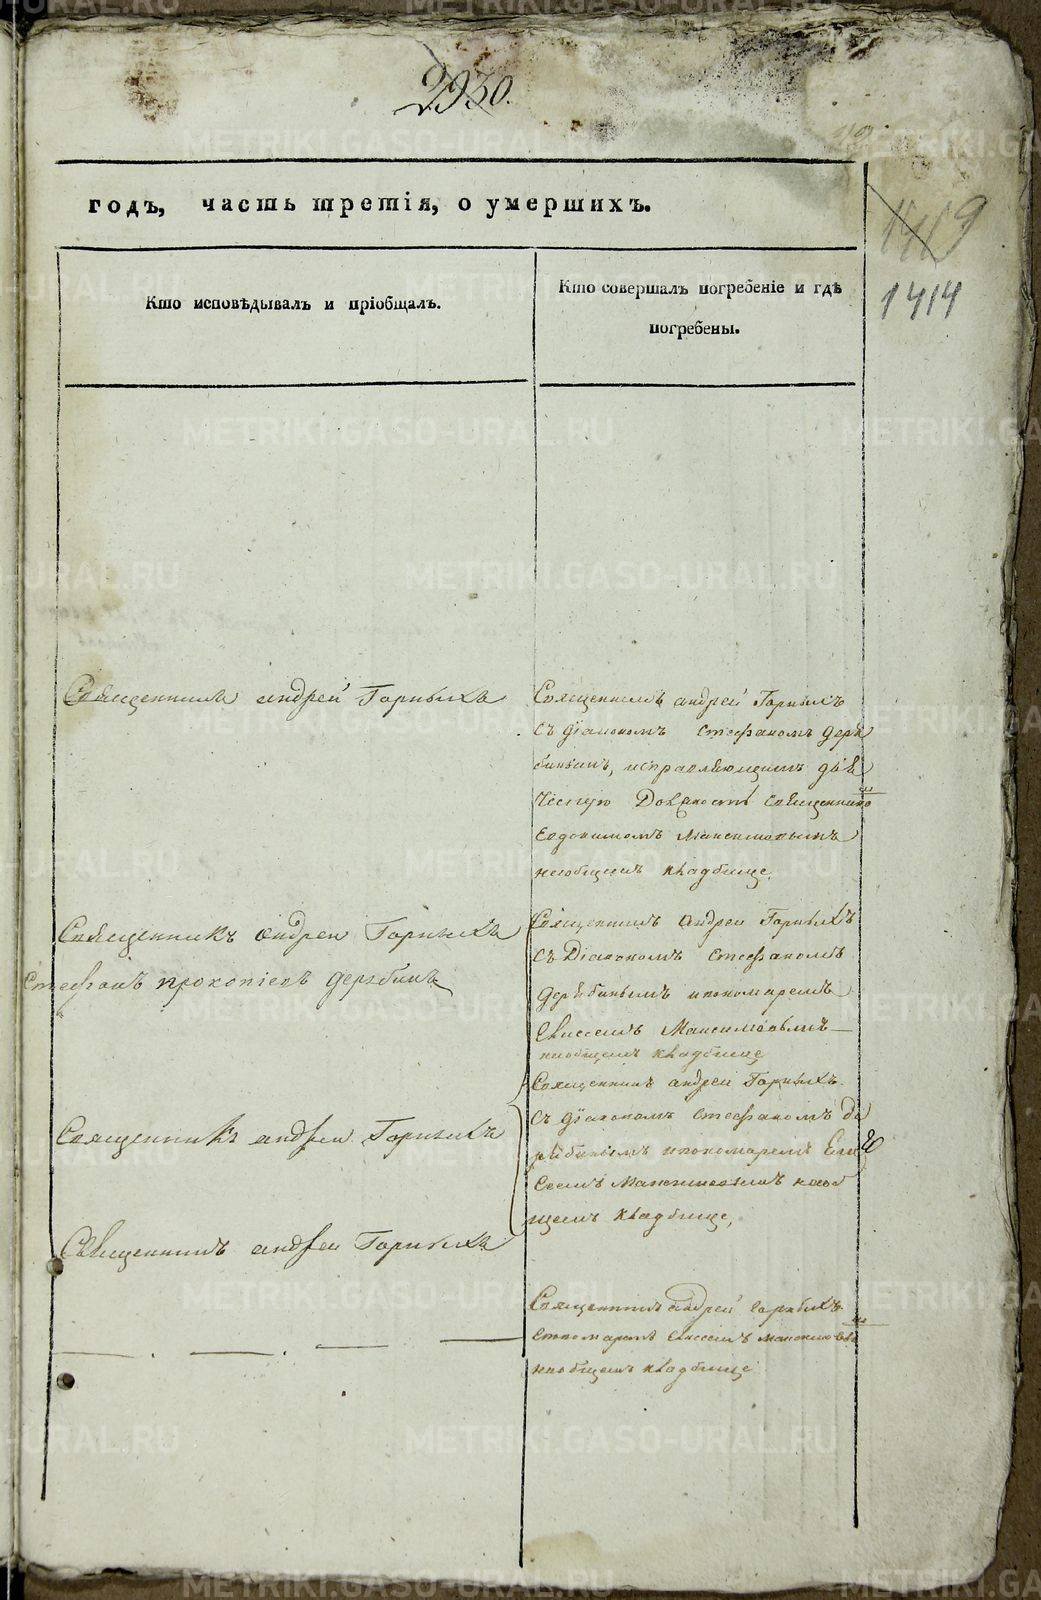 2930.
годъ, часть третія, о умершихъ.
1419
1414
Кто исповѣдывалъ и пріобщалъ.
Кто совершалъ погребеніе и гдѣ
погребены.
Священникъ андрей Горныхъ
Священникъ андрей Горныхъ
съ діакономъ стефаномъ Деря
бинымъ, исправляющимъ дья
ческую должность священника
Евдокимомъ Максимовымъ
наобщемъ кладбище.
Священникъ андреи Горныхъ
Стефанъ прокопіевъ дерябинъ
Священникъ андреи Горныхъ
съ Діакономъ стефаномъ
дерябинымъ ипономаремъ
Елисеемъ Максимовымъ
наобщемъ кладбище
Священникъ андреи Горныхъ
Священникъ андреи Горныхъ
съ діакономъ стефаномъ де
рябинымъ ипономаремъ Ели
сеемъ Максимовымъ наоб
щемъ кладбище,
Священникъ андреи Горныхъ
Священникъ андрей горныхъ
спономаремъ Елисеемъ максимовы
наобщемъ кладбище
METRIKI.GASO-URAL.RU